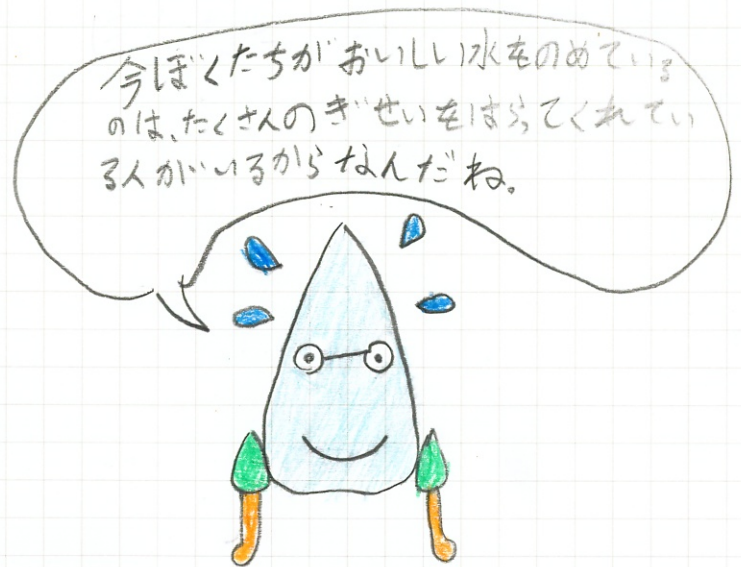 今ぼくたちがおいしい水をのめている
のは、たくさんのぎせいをはらってくれてい
る人がいるからなんだね。